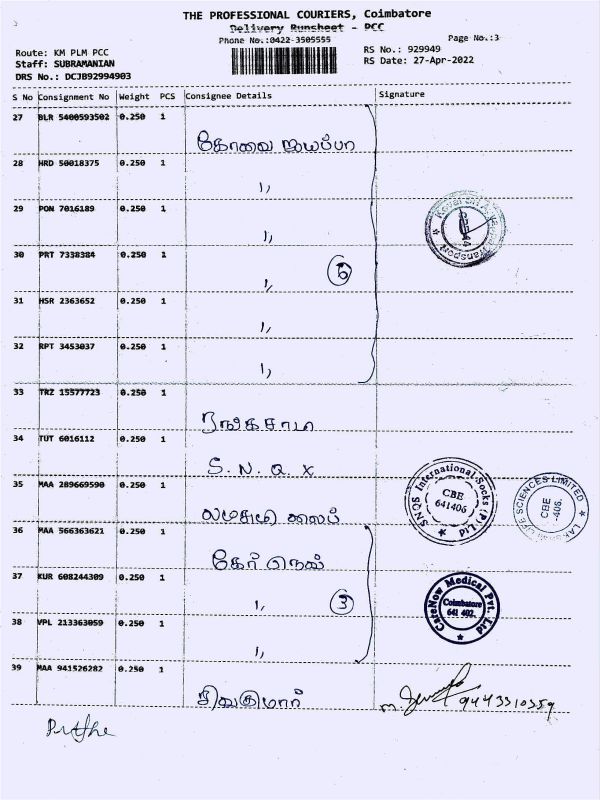 THE PROFESSIONAL COURIERS, Coimbatore
Delivery Runsheet - PCC
Phone No.:0422-3505555
Page No.:3
Route: KM PLM PCC
RS No.: 929949
Staff: SUBRAMANIAN
RS Date: 27-Apr-2022
DRS No.: DCJB92994903
S No Consignment No Weight PCS Consignee Details Signature
27 BLR 5400593502 0.250 1
கோவை
28 HRD 50018375 0.250 1
29 PON 7016189 0.250 1
30 PRT 7338384 0.250 1
6
31 HSR 2363652 0.250 1
32 RPT 3453037 0.250 1
33 TRZ 15577723 0.250 1
ரங்கசாமி
34 TUT 6016112 0.250 1
S. N. Q. X
SNQS International Socks (P) Ltd
CBE
641406
35 MAA 289669590 0.250 1
LIFE SCIENCES LIMITED
CBE
-406.
36 MAA 566363621 0.250 1
கேர்
37 KUR 608244309 0.250 1
3
CareNow Medical Pvt. Ltd
Coimbatore
641 402.
38 VPL 213363059 0.250 1
39 MAA 941526282 0.250 1
சிவகுமார்
9443310559